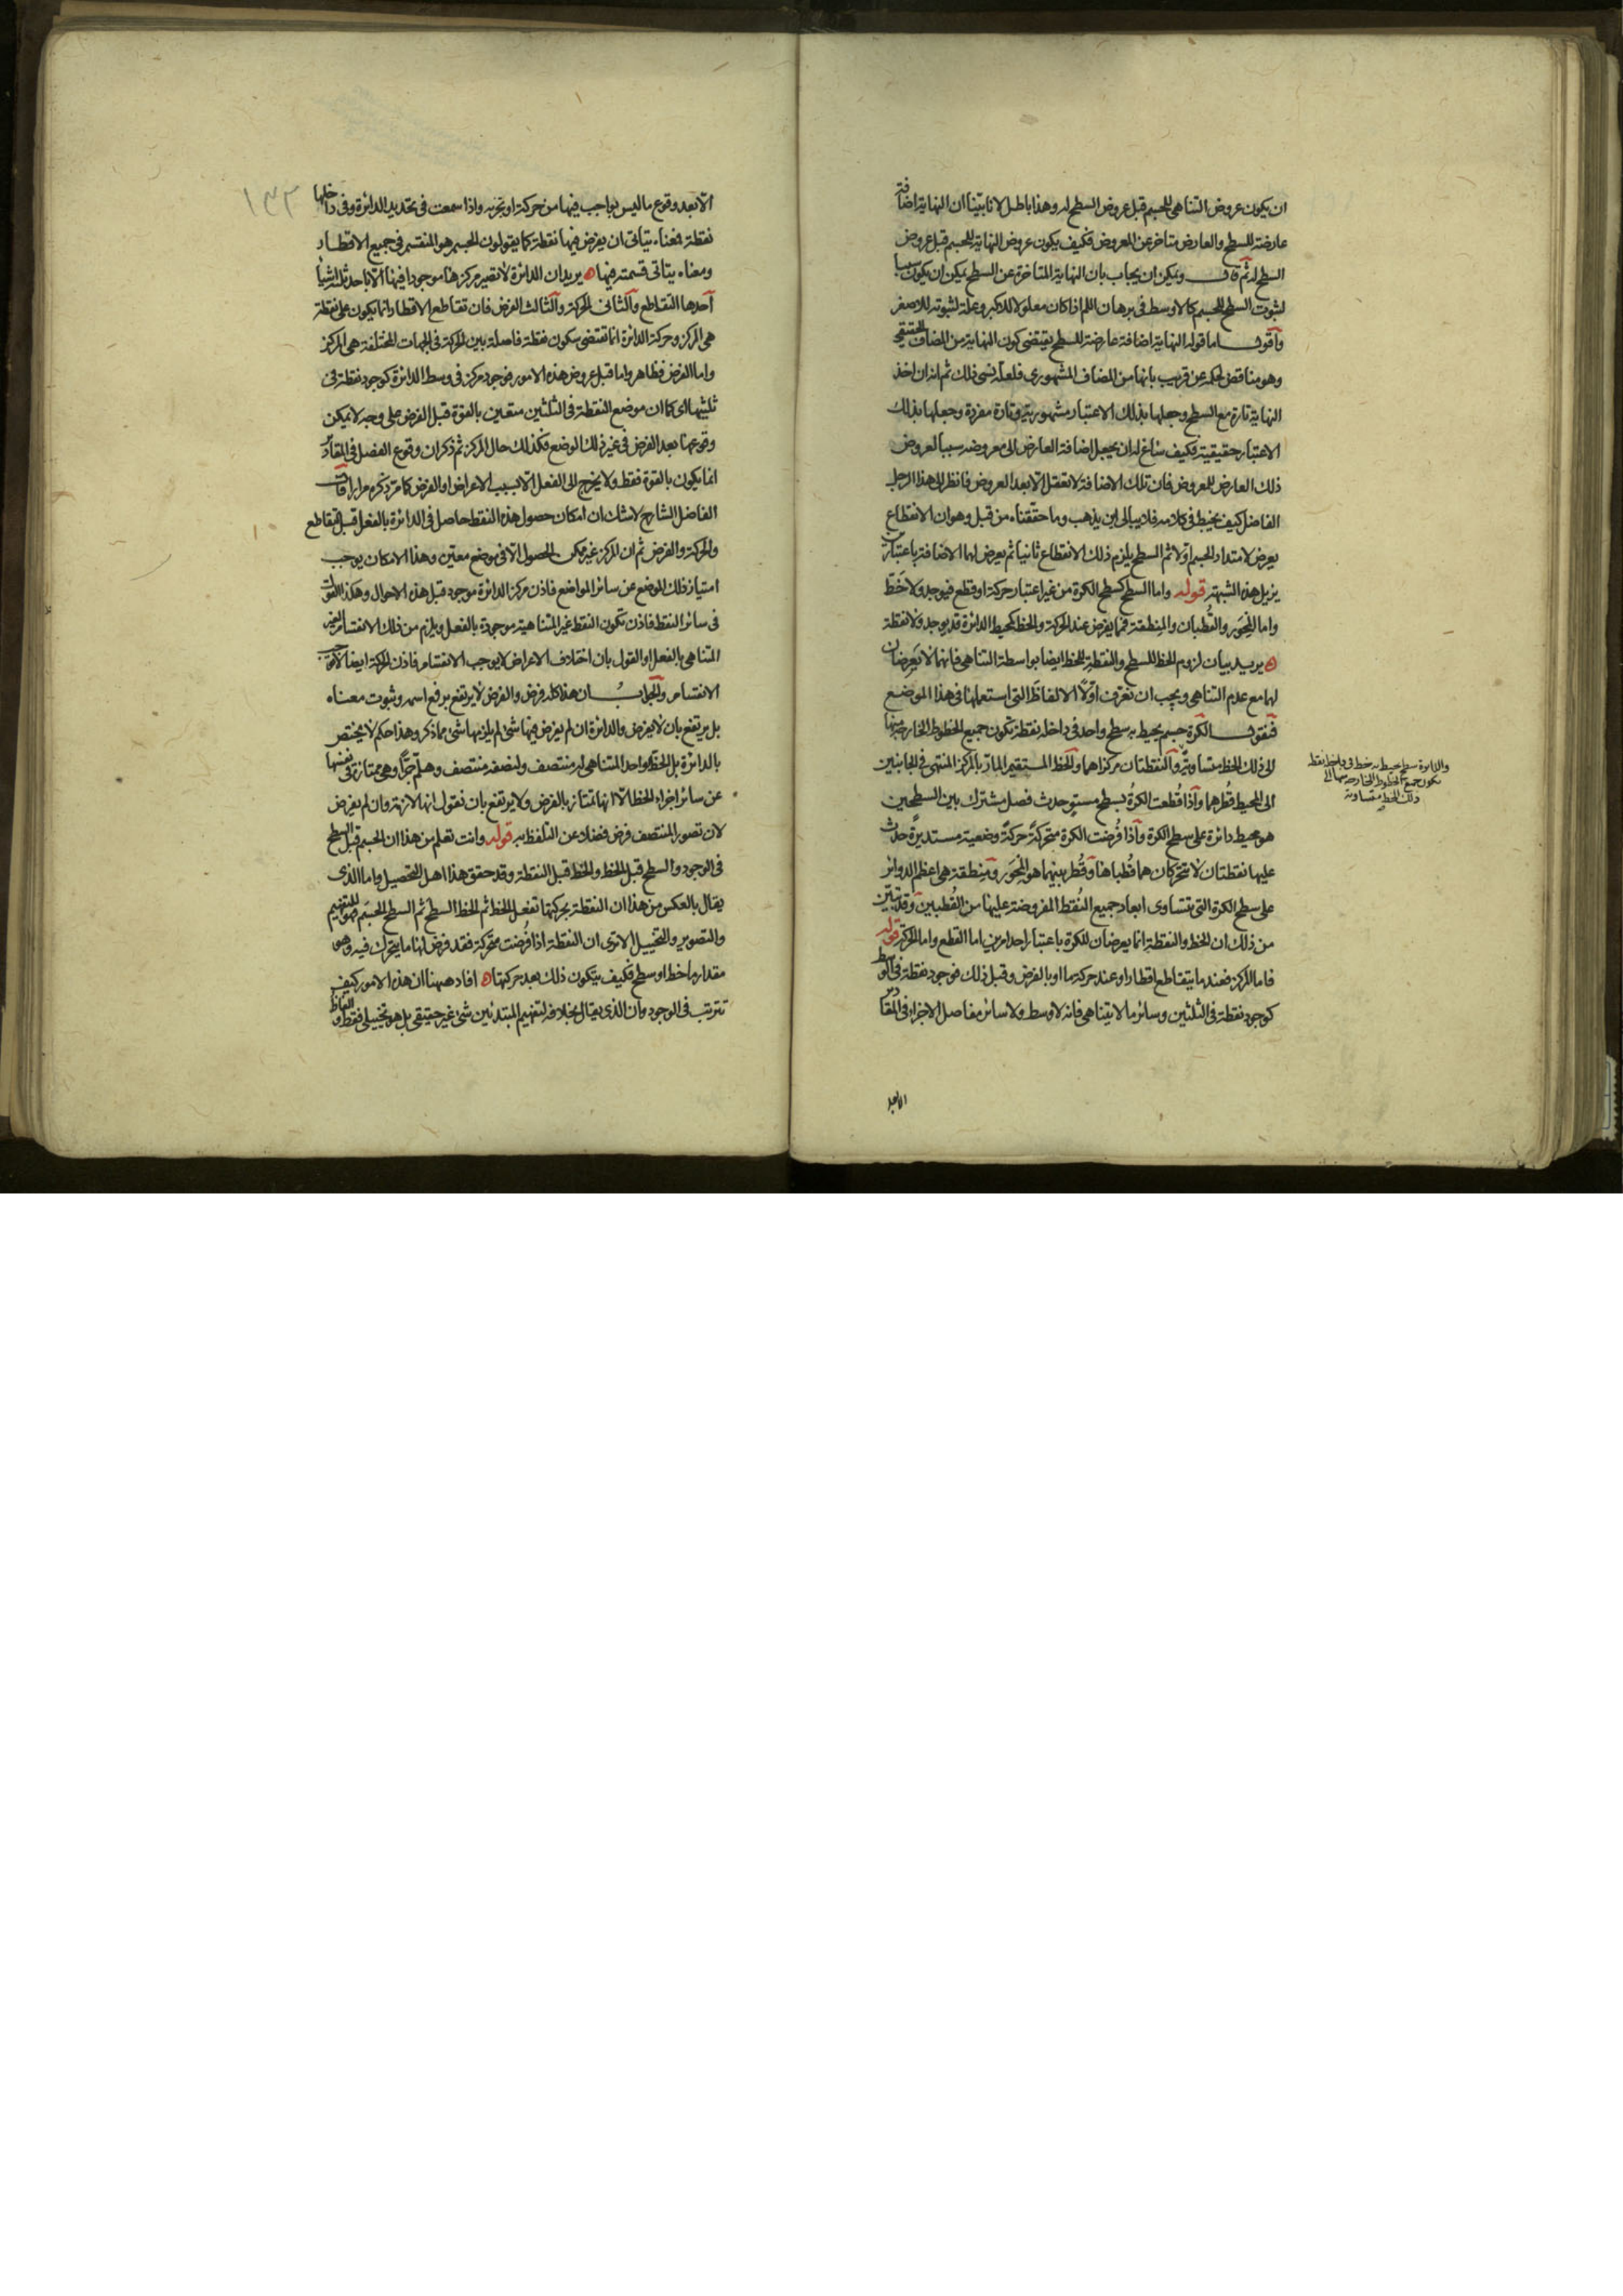 ان يكون عروض التناهى للجسم قبل عروض السطح له وهذا باطل لانا بينا ان النهاية اضافة
عارضة للسطح والعارض متاخر عن المعروض فكيف يكون عروض النهاية للجسم قبل عروض
السطح له ثم قال ويمكن ان يجاب بان النهاية المتاخرة عن السطح يمكن ان يكون سببا
لثبوت السطح للجسم كالاوسط فى برهان اللم اذا كان معلولا للاكبر وعلة لثبوته للاصغر
واقول اما قوله النهاية اضافة عارضة للسطح يقتضى كون النهاية من المضاف الحقيقى
وهو مناقض لحكمه عن قريب بانها من المضاف المشهورى فلعله نسى ذلك ثم انه ان اخذ
النهاية تارة مع السطح وجعلها بذلك الاعتبار مشهورية وتارة مفردة وجعلها بذلك
الاعتبار حقيقية فكيف ساغ له ان يجعل اضافة العارض الى معروضه سببا لعروض
ذلك العارض للمعروض فان تلك الاضافة لا تعقل الا بعد العروض فانظر الى هذا الرجل
الفاضل كيف يخبط فى كلامه فلا يبالى اين يذهب وما حققناه من قبل وهو ان الانقطاع
يعرض لامتداد الجسم اولا ثم السطح يلزم ذلك الانقطاع ثانيا ثم يعرض لهما الاضافة باعتبارين
يزيل هذه الشبهة قوله واما السطح كسطح الكرة من غير اعتبار حركة او قطع فيوجد ولا خط
واما المِحوَر والقُطبان والمنطقة فمما يفرض عند الحركة والخط كمحيط الدائرة قد يوجد ولا نقطة
يريد بيان لزوم الخط للسطح والنقطة للخط ايضا بواسطة التناهى فانهما لا يَعرِضان
لهما مع عدم التناهى ويجب ان نعرف اوّلاً الالفاظ التى استعملها فى هذا الموضع
فنقول الكرة جسم يحيط به سطح واحد فى داخله نقطة تكون جميع الخطوط الخارجة منها
الى ذلك الخط متساوية والنقطتان مركزاهما والخط المستقيم المارّ بالمركز المنتهى فى الجانبين
الى المحيط قُطرهما واذا قُطعت الكرةُ بسطح مستوٍ حدث فصل مشترك بين السطحين
هو محيط دائرة على سطح الكرة واذا فُرضت الكرة متحركةً حركةً وضعية مستديرةً حدث
عليها نقطتان لا تتحركان هما قُطباها وقُطر بينهما هو المِحوَر ومِنطقة هى اعظم الدوائر
على سطح الكرة التى تتساوى ابعاد جميع النُقط المفروضة عليها من القُطبين وقد تبيّن
من ذلك ان الخط والنقطة انما يعرضان للكرة باعتبار احد امرين اما القطع واما الحركة قوله
فاما المركز فعند ما يتقاطع اقطار او عند حركة ما او بالفرض وقبل ذلك فوجود نقطة فى الوسط
كوجود نقطة فى الثلثين وسائر ما لا يتناهى فانه لا وسط ولا سائر مفاصل الاجزاء فى المقادير
والدائرة سطح يحيط به خط فى داخله نقطة
يكون جميع الخطوط الخارجة منها الى
ذلك الخط متساوية
الا بعد
١٣٢
الا بعد وقوع ما ليس بواجب فيها من حركة او تجزيه واذا سمعت فى تحديد الدائرة وفى داخلها
نقطة فمعناه يتاتى ان يفرض فيها نقطة كما يقولون الجسم هو المنقسم فى جميع الاقطار
ومعناه يتاتى قسمته فيها يريد ان الدائرة لا تصير مركزها موجودا فيها الا باحد ثلثة اشياء
احدها التقاطع والثانى الحركة والثالث الفرض فان تقاطع الاقطار انما يكون على نقطة
هى المركز وحركة الدائرة انما تقتضى سكون نقطة فاصلة بين الحركة فى الجهات المختلفة هى المركز
واما الفرض فظاهر واما قبل عروض هذه الامور فوجود مركز فى وسط الدائرة كوجود نقطة فى
ثلثيها اى كما ان موضع النقطة فى الثلثين متعين بالقوة قبل الفرض على وجه لا يمكن
وقوعها بعد الفرض فى غير ذلك الموضع فكذلك حال المركز ثم ذكر ان وقوع الفصل فى المقادير
انما يكون بالقوة فقط ولا يخرج الى الفعل الا بسبب الاعراض او الفرض كما مرّ ذكره مرارا قال
الفاضل الشارح لا شك ان امكان حصول هذه النقط حاصل فى الدائرة بالفعل قبل التقاطع
والحركة والفرض ثم ان المركز غير ممكن الحصول الا فى موضع معيّن وهذا الامكان يوجب
امتياز ذلك الموضع عن سائر المواضع فاذن مركز الدائرة موجود قبل هذه الاحوال وهكذا القول
فى سائر النقط فاذن تكون النقط غير المتناهية موجودة بالفعل ويلزم من ذلك الانقسام الغير
المتناهى بالفعل او القول بان اختلاف الاعراض لا يوجب الانقسام فاذن الحركة ايضا لا توجب
الانقسام والجواب ان هذا كله فرض والفرض لا يرتفع برفع اسمه وثبوت معناه
بل يرتفع بان لا يفرض والدائرة ان لم يفرض فيها شئ لم يلزمها شئ مما ذكره وهذا حكم لا يختص
بالدائرة بل الخط الواحد المتناهى له منتصف ولنصفه منتصف وهلمّ جرًّا وهى ممتازة فى نفسها
عن سائر اجزاء الخط الا انها تمتاز بالفرض ولا يرتفع بان نقول انها لازمة وان لم يفرض
لان تصور المنتصف فرض فضلا عن التلفظ به قوله وانت تعلم من هذا ان الجسم قبل السطح
فى الوجود والسطح قبل الخط والخط قبل النقطة وقد حقق هذا اهل التحصيل واما الذى
يقال بالعكس من هذا ان النقطة بحركتها تفعل الخط ثم الخط السطح ثم السطح الجسم فهو للتفهيم
والتصوير والتخييل الا ترى ان النقطة اذا فُرضت متحركة فقد فرض لها ما يتحرك فيه وهو
مقدار ما خط او سطح فكيف يتكون ذلك بعد حركتها افاد ههنا ان هذه الامور كيف
تترتب فى الوجود وان الذى يقال بخلافه لتفهيم المبتدئين شئ غير حقيقى بل هو تخييلى فقط والفاظ